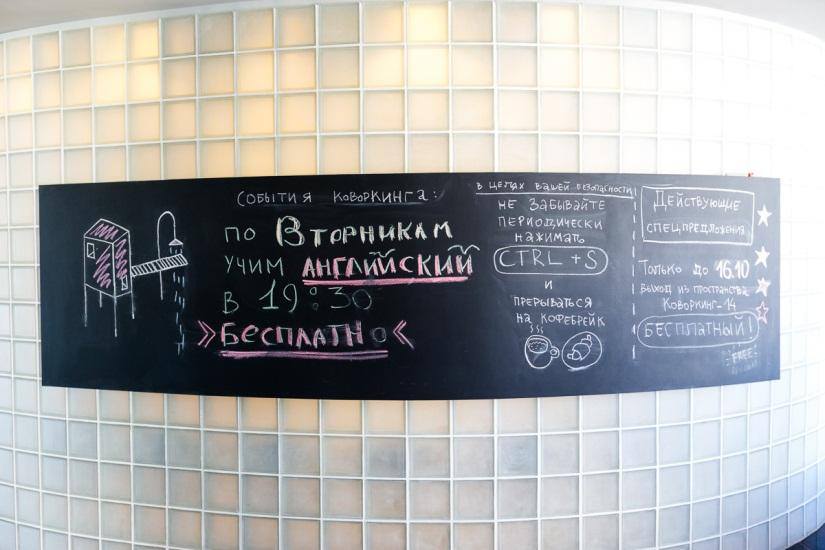 События коворкинга:
по Вторникам
учим английский
в 19:30
» Бесплатно «
в целях вашей безопасности
не забывайте
периодически
нажимать
CTRL + S
и
прерываться
на кофебрейк
Действующие
спецпредложения
Только до 16.10
выход из пространства
Коворкинг-14
Бесплатный!
FREE